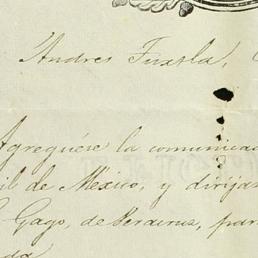 Andres Tuxtla,
Agreguese la comunicac
il de México, y dirijas
Gago, de Veracruz, par
da